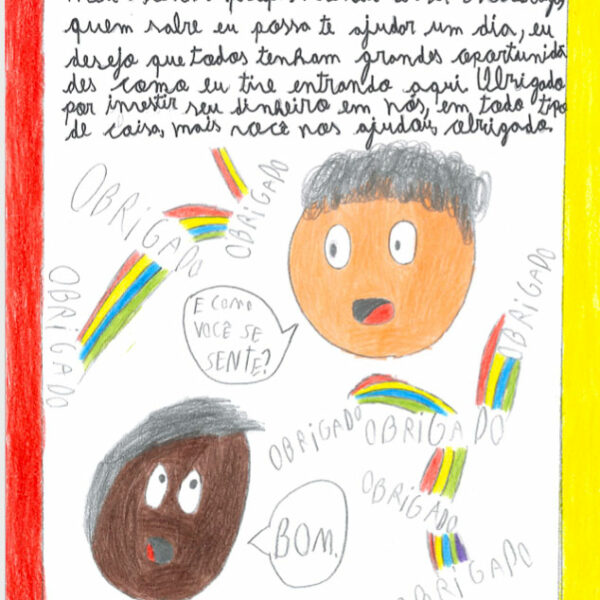 quem sabe eu possa te ajudar um dia, eu
desejo que todos tenham grandes oportunida
des como eu tive entrando aqui. Obrigado
por investir seu dinheiro em nós, em todo tipo
de coisa, mais você nos ajudou, obrigado.
OBRIGADO
OBRIGADO
OBRIGADO
OBRIGADO
E COMO
VOCÊ SE
SENTE?
OBRIGADO
OBRIGADO
OBRIGADO
BOM.
OBRIGADO